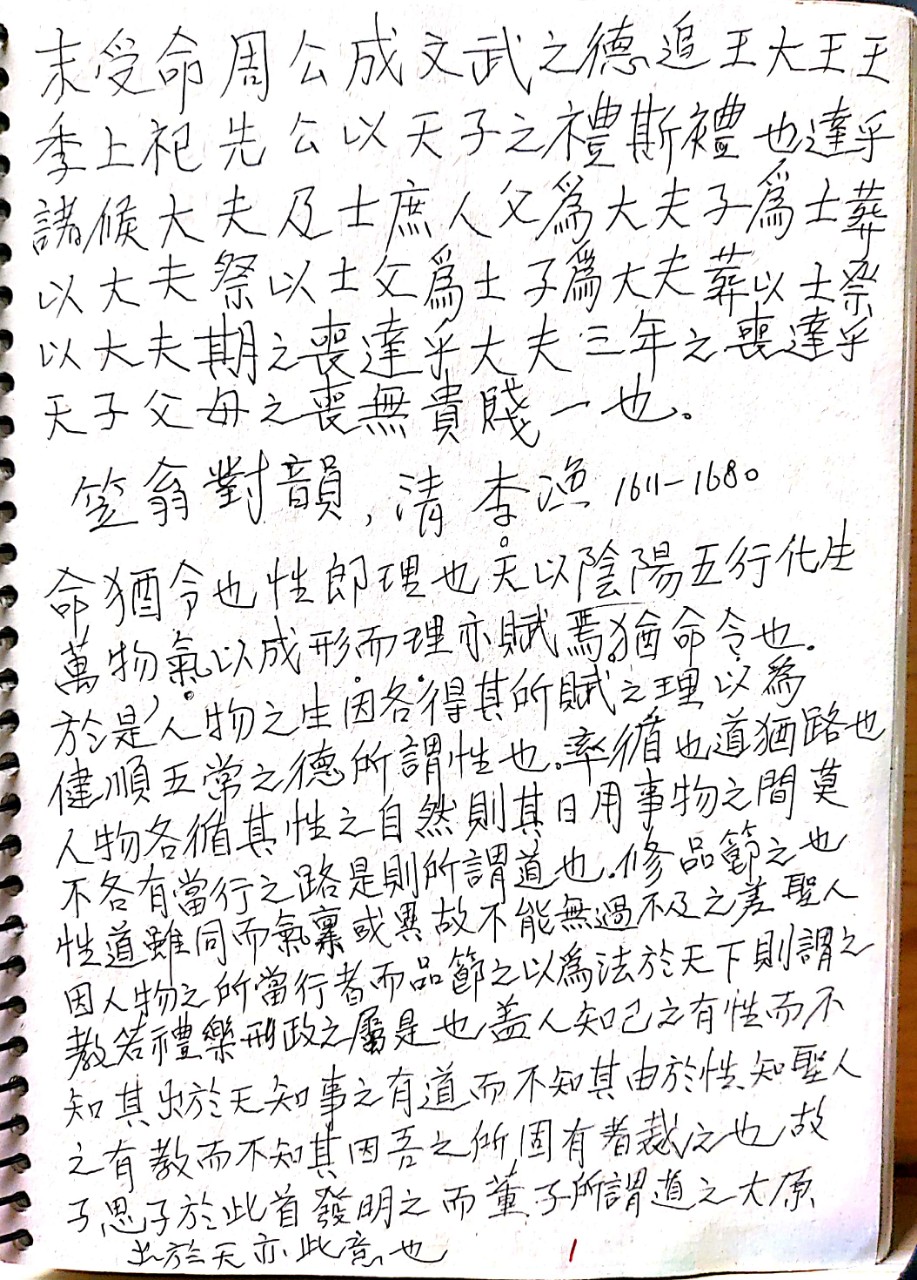 末受命周公成文武之德追王大王王
季上祀先公以天子之禮斯禮也達乎
諸候大夫及士庶人父爲大夫子爲士葬
以大夫祭以士父爲士子爲大夫葬以士祭
以大夫期之喪達乎大夫三年之喪達乎
天子父母之喪無貴賤一也。
笠翁對韻,清李漁1611-1680
命猶令也性即理也天以陰陽五行化生
萬物,氣以成形而理亦賦焉猶命令也.
於是人物之生因各得其所賦之理以為
健順五常之德所謂性也.率循也道猶路也
人物各循其性之自然則其日用事物之間莫
不各有當行之路是則所謂道也.修品節之也
性道雖同而氣稟或異故不能無過不及之差聖人
因人物之所當行者而品節之以為法於天下則謂之
教若禮樂刑政之屬是也盖人知己之有性而不
知其出於天知事之有道而不知其由於性知聖人
之有教而不知其因吾之所固有者裁之也故
子思子於此首發明之而董子所謂道之大原
出於天亦此意也
1